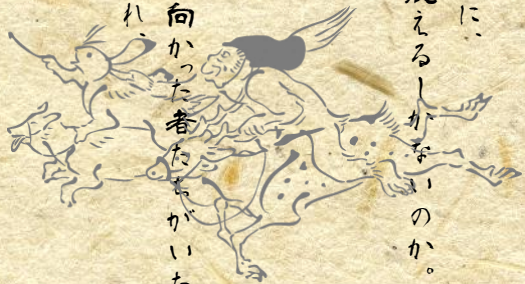 に、
えるしかないのか。
向かった者たちがいた
れ、